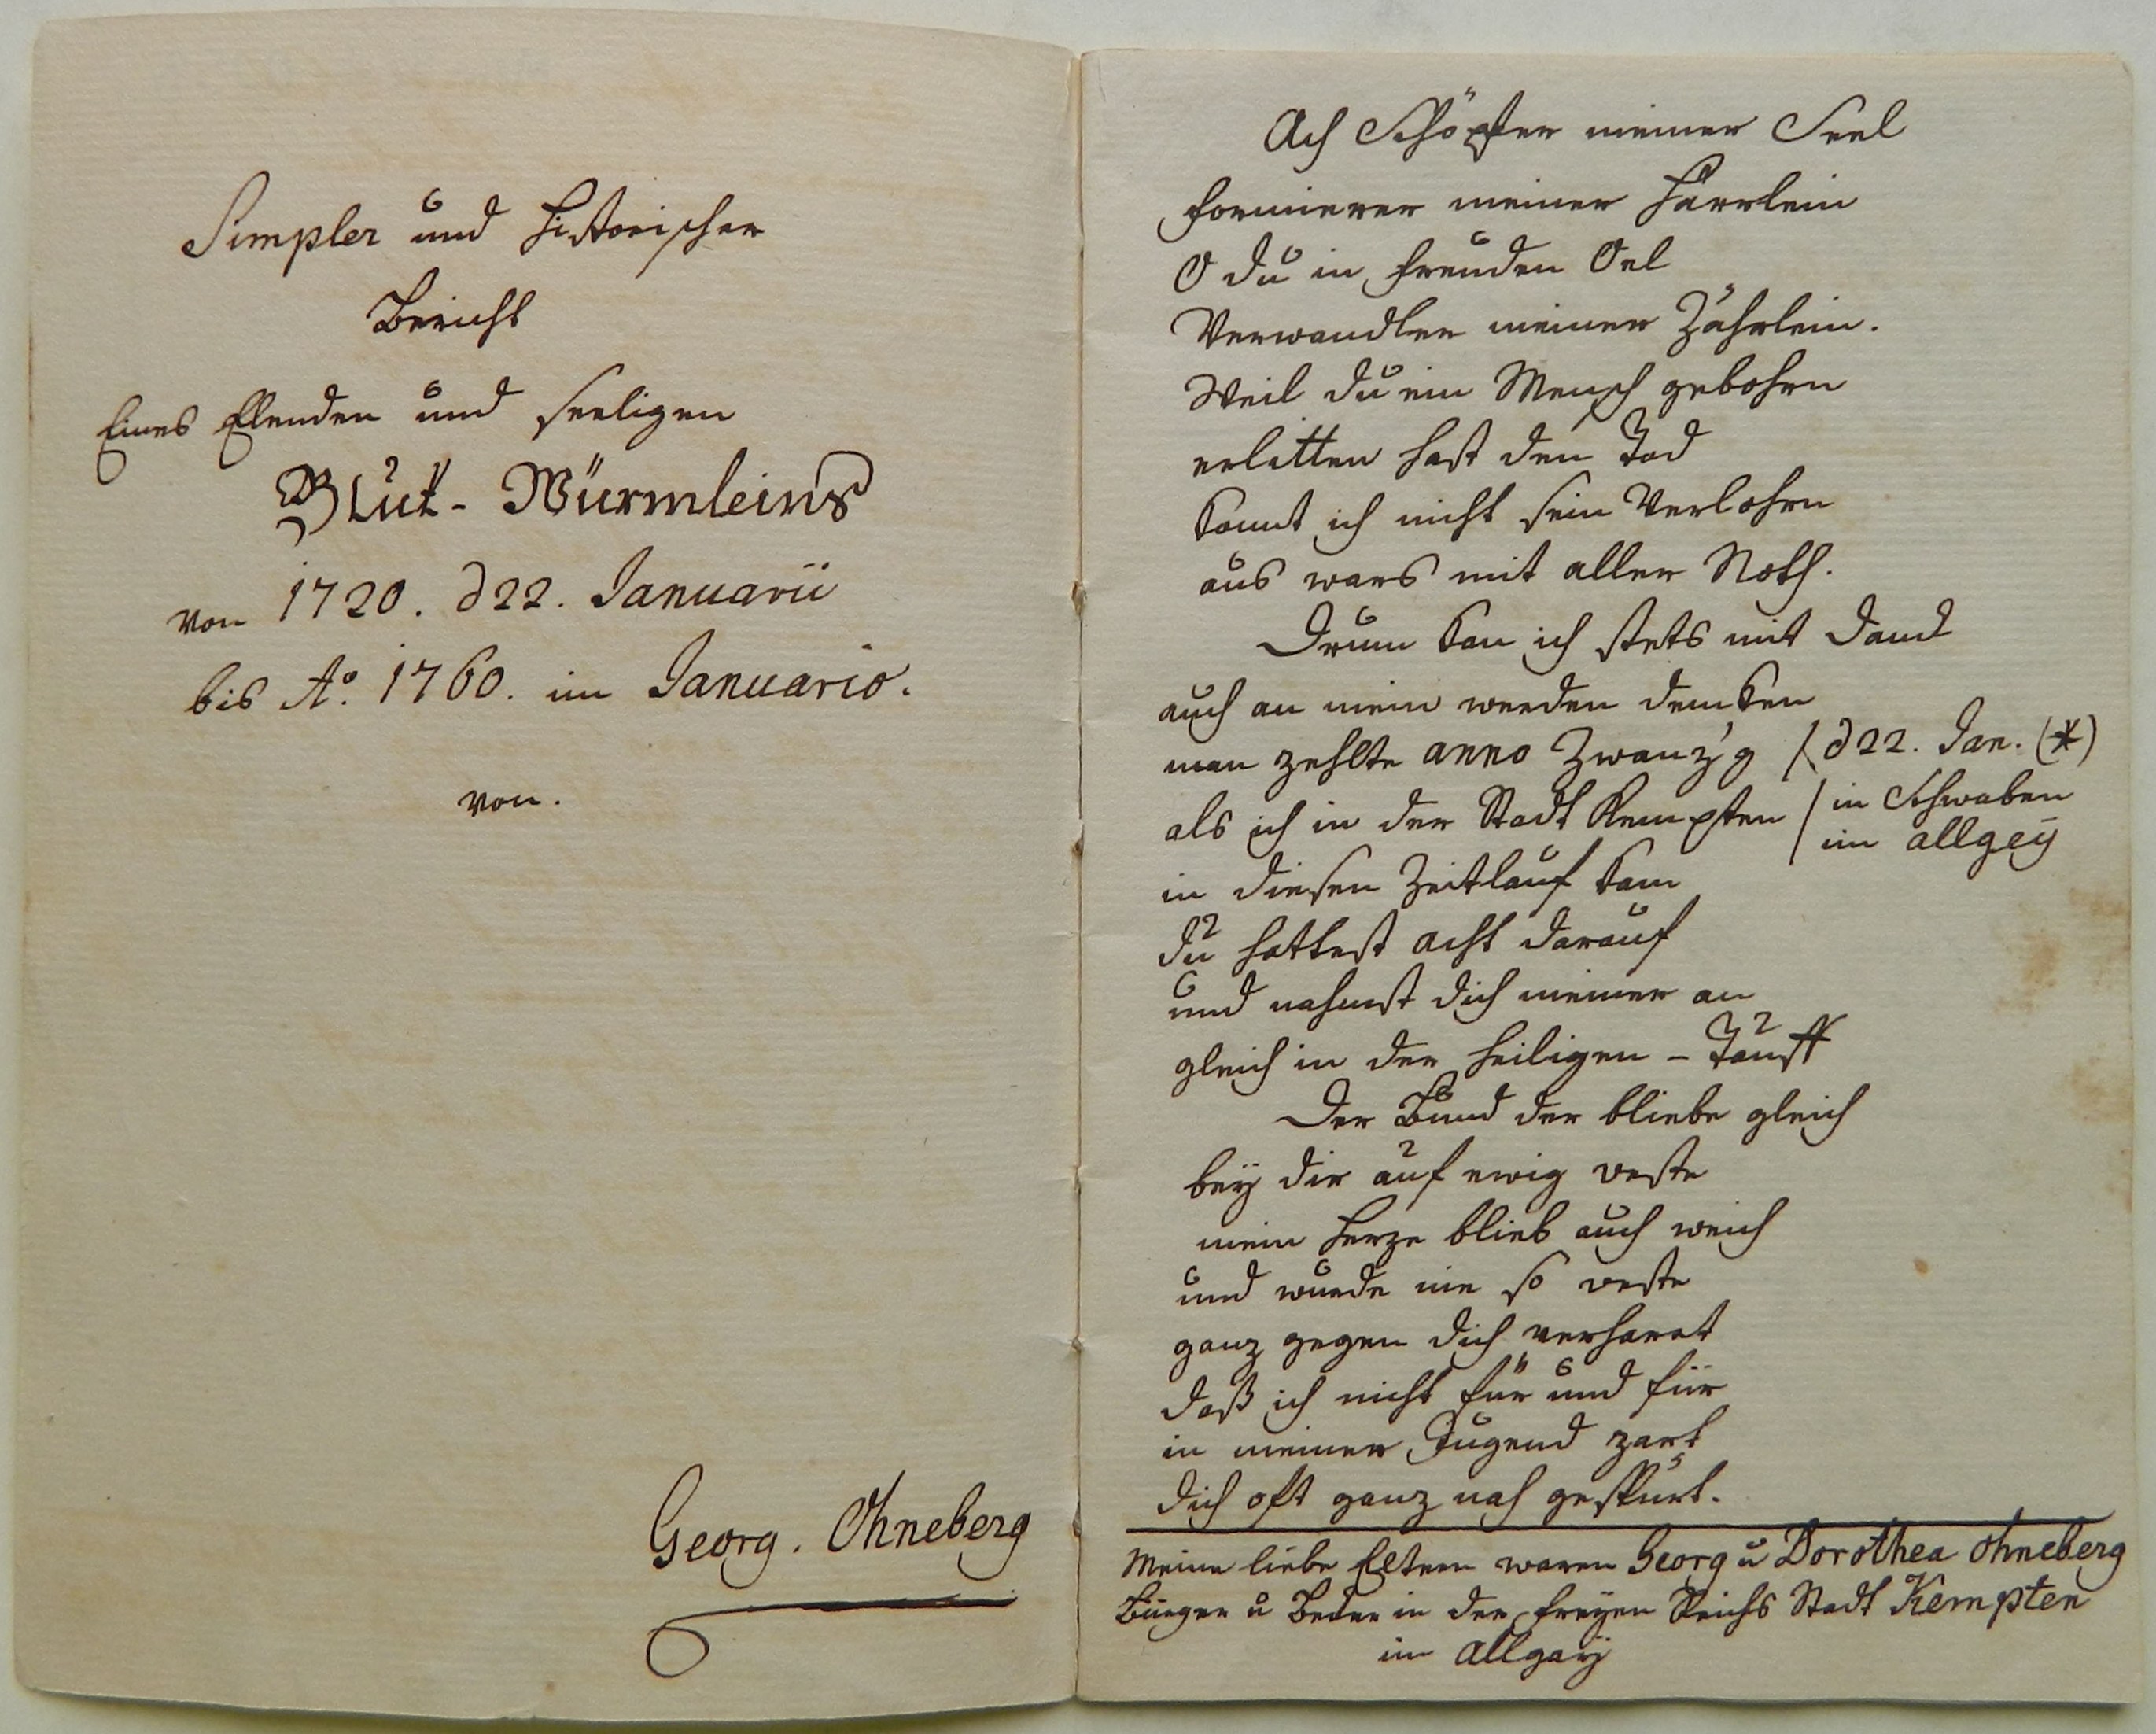 Simpler und Historischer
Bericht
Eines Elenden und seeligen
Blut-Würmleins
von 1720. d 22. Januarii
bis Aō. 1760. im Januario.
von.
Georg. Ohneberg
Ach Schöpfer meiner Seel
formierer meiner Härrlein
O du in freuden Oel
Verwandler meiner Zährlein.
Weil du ein Mensch gebohrn
erlitten hast den Tod
konnt ich nicht sein Verlohrn
aus wars mit aller Noth.
Drum kan ich stets mit Dank
auch an mein werden denken
man zehlte anno Zwanz'g / d 22. Jan. (*)
als ich in der Stadt Kempten / in Schwaben
im allgey
in diesen Zeitlauf kam
du hattest acht darauf
und nahmst dich meiner an
gleich in der heiligen - Tauff
Der Bund der bliebe gleich
bey dir auf ewig veste
mein Herze blieb auch weich
und wurde nie so veste
ganz gegen dich verharrt
daß ich nicht für und für
in meiner Jugend zart
dich oft ganz nah gespürt.
Meine liebe Eltern waren Georg u Dorothea Ohneberg
Bürger u Beder in der freyen Reichs Stadt Kempten
im Allgaÿ